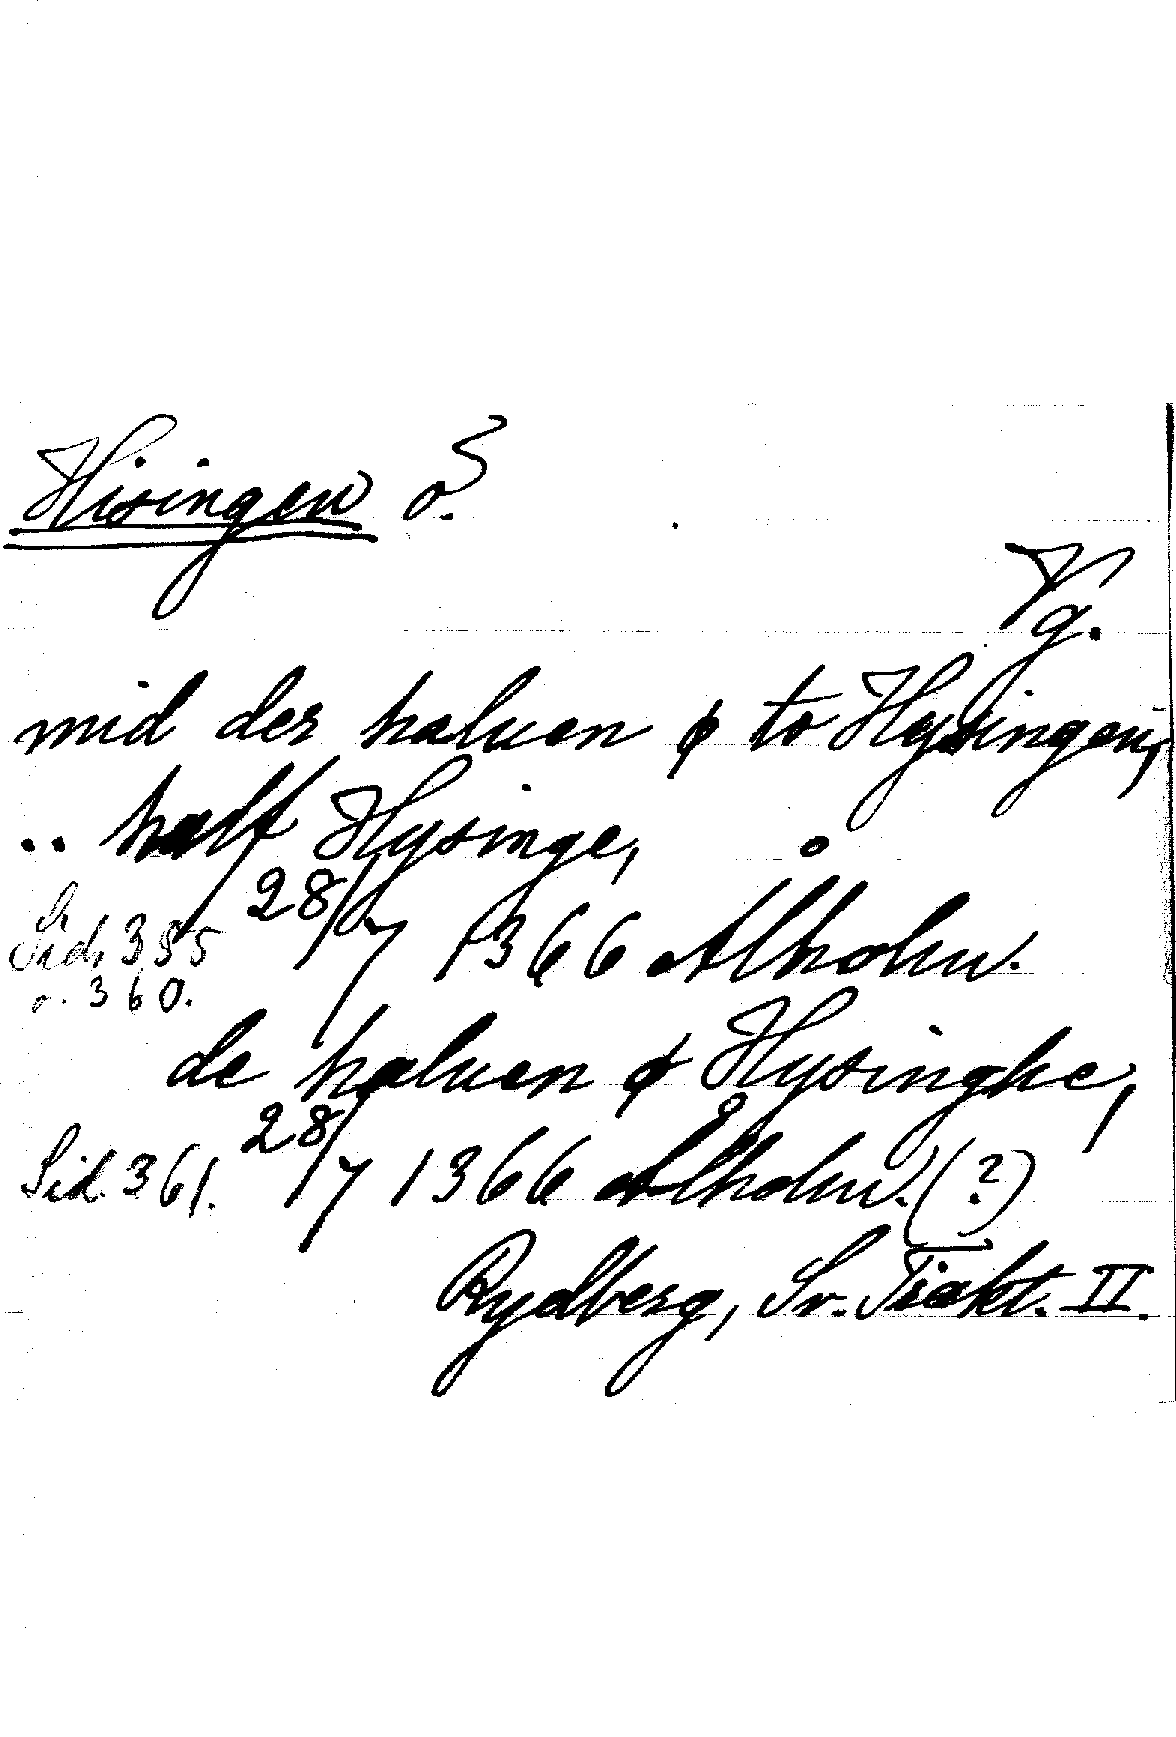 Hisingen ö.
Vg.
mid der haluen ø to Hysingen,
.. half Hysinge,
28/7 1366 Ålholm.
Sid. 355
o. 360.
de haluen ø Hysinghe,
Sid. 361. 28/7 1366 Ålholm. (?)
Rydberg, Sv. Trakt. II.